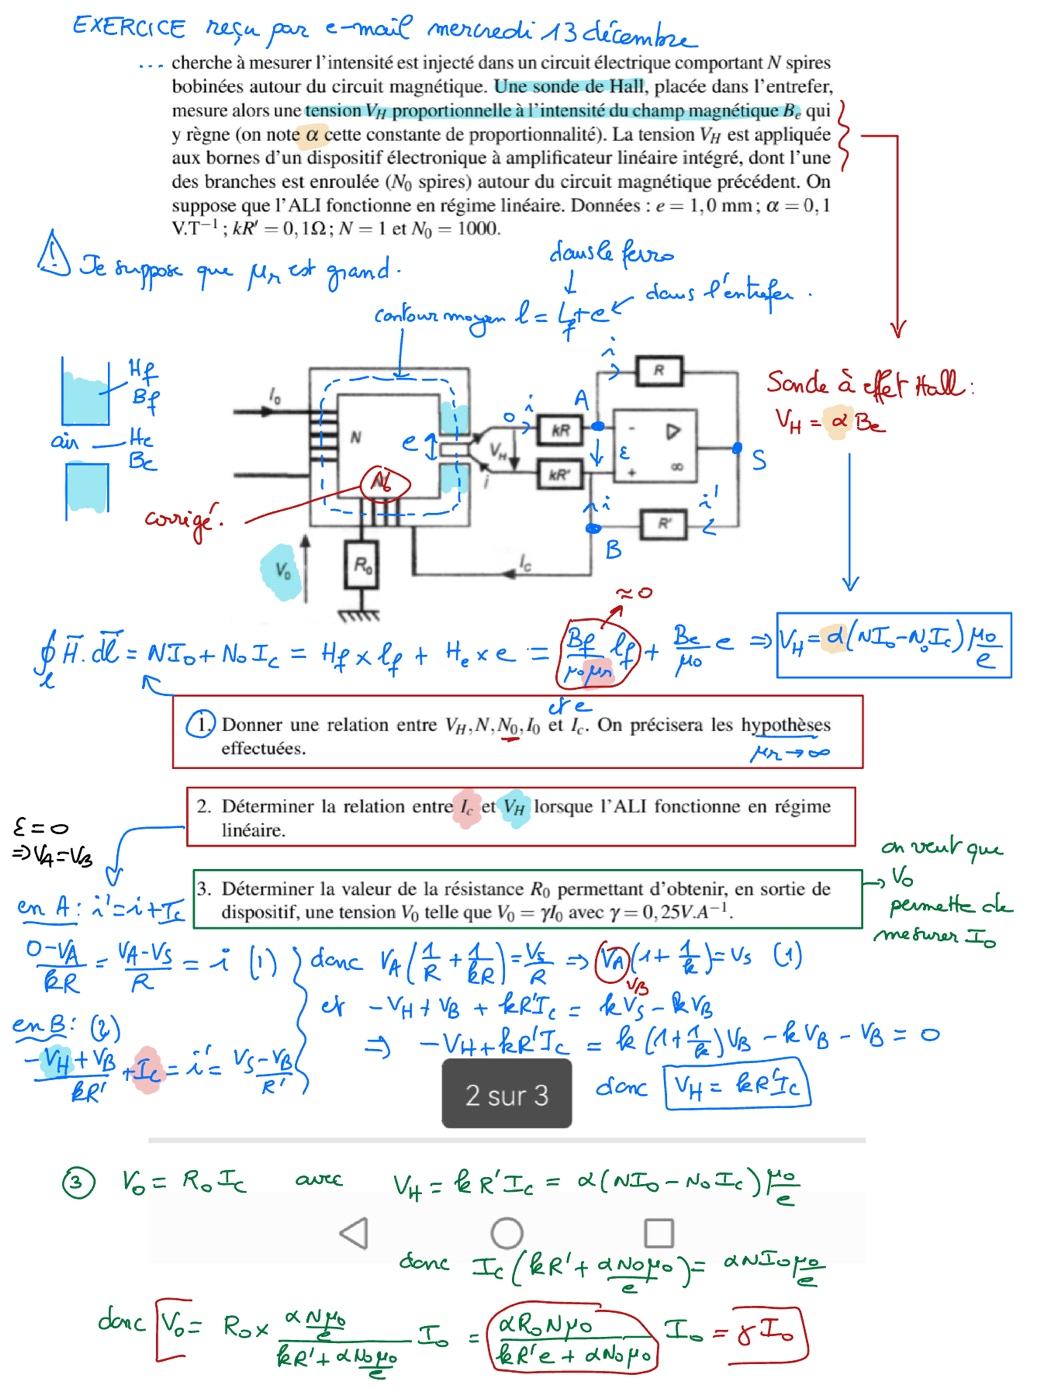 EXERCICE reçu par e-mail mercredi 13 décembre
... cherche à mesurer l'intensité est injecté dans un circuit électrique comportant N spires
bobinées autour du circuit magnétique. Une sonde de Hall, placée dans l'entrefer,
mesure alors une tension V_H proportionnelle à l'intensité du champ magnétique B_e qui
y règne (on note α cette constante de proportionnalité). La tension V_H est appliquée
aux bornes d'un dispositif électronique à amplificateur linéaire intégré, dont l'une
des branches est enroulée (N_0 spires) autour du circuit magnétique précédent. On
suppose que l'ALI fonctionne en régime linéaire. Données : e = 1,0 mm ; α = 0,1
V.T⁻¹ ; kR' = 0,1Ω ; N = 1 et N_0 = 1000.
⚠ Je suppose que μr est grand.
dans le ferro
contour moyen l = lf + e
dans l'entrefer.
Hf
Bf
air
He
Be
I_0
N
e
N_0
corrigé.
V_0
R_0
I_c
V_H
i
0
i
kR
kR'
A
i
R
-
+
ε
▷
∞
S
i
B
R'
i'
Sonde à effet Hall :
V_H = α Be
≈ 0
∮_l H.dl = NI_0 + N_0 I_c = Hf × lf + He × e = Bf/(μ0 μr) lf + Be/μ0 e ⇒ V_H = α(NI_0 - N_0 I_c) μ0/e
et e
1. Donner une relation entre V_H, N, N_0, I_0 et I_c. On précisera les hypothèses
effectuées.
μr → ∞
2. Déterminer la relation entre I_c et V_H lorsque l'ALI fonctionne en régime
linéaire.
ε = 0
⇒ V_A = V_B
3. Déterminer la valeur de la résistance R_0 permettant d'obtenir, en sortie de
dispositif, une tension V_0 telle que V_0 = γI_0 avec γ = 0,25V.A⁻¹.
on veut que
V_0
permette de
mesurer I_0
en A : i' = i + I_c
(0 - V_A)/kR = (V_A - V_S)/R = i (1)
donc V_A (1/R + 1/kR) = V_S/R ⇒ V_A (1 + 1/k) = V_S (1)
V_B
et -V_H + V_B + kR'I_c = kV_S - kV_B
en B : (2)
(-V_H + V_B)/kR' + I_c = i' = (V_S - V_B)/R'
⇒ -V_H + kR'I_c = k(1 + 1/k)V_B - kV_B - V_B = 0
donc V_H = kR'I_c
2 sur 3
③ V_0 = R_0 I_c avec V_H = kR'I_c = α(NI_0 - N_0 I_c) μ0/e
donc I_c (kR' + αN_0 μ0/e) = αNI_0 μ0/e
donc V_0 = R_0 × (αN μ0/e)/(kR' + αN_0 μ0/e) I_0 = (αR_0 N μ0)/(kR'e + αN_0 μ0) I_0 = γI_0